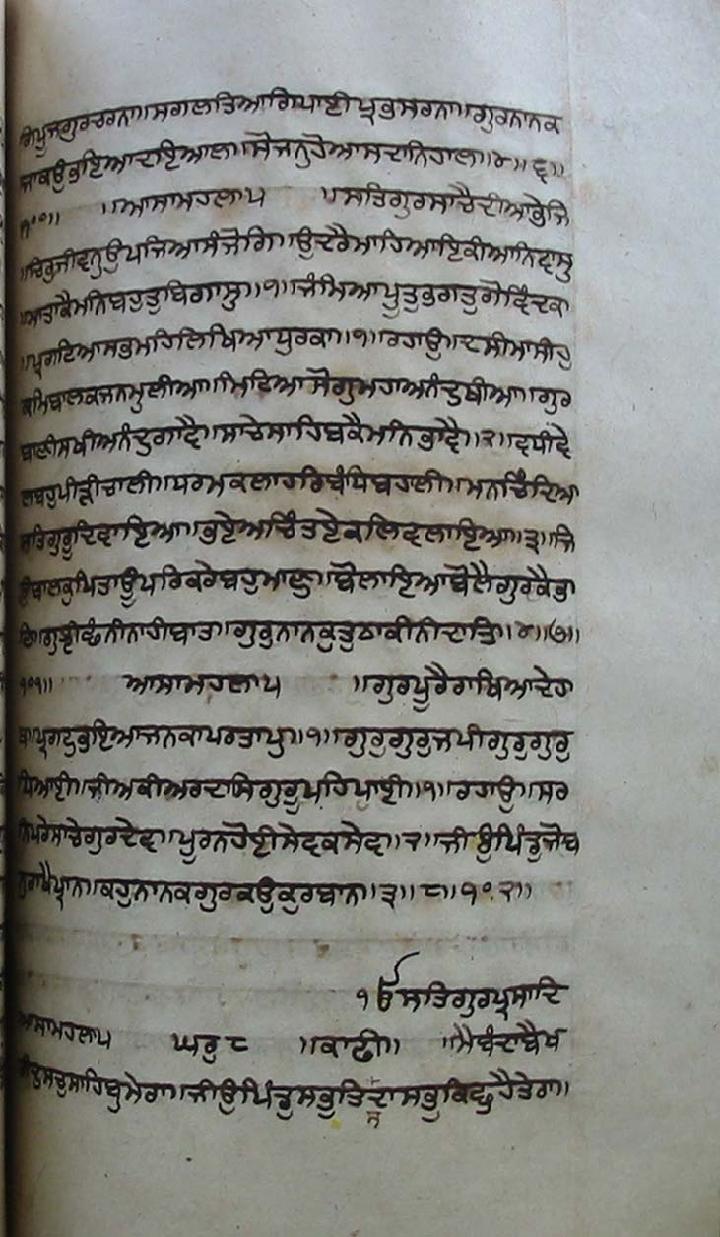 ਗਿਪੂਜਗੁਰਚਰਨਾ॥ਸਗਲਤਿਆਗਿਪਾਈਪ੍ਰਭਸਰਨਾ॥ਗੁਰਨਾਨਕ
ਜਾਕਉਭਇਆਦਇਆਲਾ॥ਸੋਜਨੁਹੋਆਸਦਾਨਿਹਾਲਾ॥੪॥੬॥
੧੦੦॥ ॥ਆਸਾਮਹਲਾ੫ ॥ਸਤਿਗੁਰਸਾਚੈਦੀਆਭੇਜਿ
॥ਚਿਰੁਜੀਵਨੁਉਪਜਿਆਸੰਜੋਗਿ॥ਉਦਰੈਮਾਹਿਆਇਕੀਆਨਿਵਾਸੁ
॥ਮਾਤਾਕੈਮਨਿਬਹੁਤੁਬਿਗਾਸੁ॥੧॥ਜੰਮਿਆਪੂਤੁਭਗਤੁਗੋਵਿੰਦਕਾ
॥ਪ੍ਰਗਟਿਆਸਭਮਹਿਲਿਖਿਆਧੁਰਕਾ॥੧॥ਰਹਾਉ॥ਦਸੀਮਾਸੀਹੁ
ਕਮਿਬਾਲਕਜਨਮੁਲੀਆ॥ਮਿਟਿਆਸੋਗੁਮਹਾਅਨੰਦੁਥੀਆ॥ਗੁਰ
ਬਾਣੀਸਖੀਅਨੰਦੁਗਾਵੈ॥ਸਾਚੇਸਾਹਿਬਕੈਮਨਿਭਾਵੈ॥੨॥ਵਧੀਵੇ
ਲਬਹੁਪੀੜੀਚਾਲੀ॥ਧਰਮਕਲਾਹਰਿਬੰਧਿਬਹਾਲੀ॥ਮਨਚਿੰਦਿਆ
ਸਤਿਗੁਰੂਦਿਵਾਇਆ॥ਭਏਅਚਿੰਤਏਕਲਿਵਲਾਇਆ॥੩॥ਜਿ
ਉਬਾਲਕੁਪਿਤਾਊਪਰਿਕਰੇਬਹੁਮਾਣੁ॥ਬੋਲਾਇਆਬੋਲੈਗੁਰਕੈਭਾ
ਣਿ॥ਗੁਝੀਛੰਨੀਨਾਹੀਬਾਤ॥ਗੁਰੁਨਾਨਕੁਤੁਠਾਕੀਨੀਦਾਤਿ॥੪॥੭॥
੧੦੧॥ ਆਸਾਮਹਲਾ੫ ॥ਗੁਰਪੂਰੈਰਾਖਿਆਦੇਹਾ
ਥ॥ਪ੍ਰਗਟੁਭਇਆਜਨਕਾਪਰਤਾਪੁ॥੧॥ਗੁਰੁਗੁਰੁਜਪੀਗੁਰੁਗੁਰੁ
ਧਿਆਈ॥ਜੀਅਕੀਅਰਦਾਸਿਗੁਰੂਪਹਿਪਾਈ॥੧॥ਰਹਾਉ॥ਸਰ
ਨਿਪਰੇਸਾਚੇਗੁਰਦੇਵ॥ਪੂਰਨਹੋਈਸੇਵਕਸੇਵ॥੨॥ਜੀਉਪਿੰਡੁਜੋਬ
ਨੁਰਾਖੈਪ੍ਰਾਨ॥ਕਹੁਨਾਨਕਗੁਰਕਉਕੁਰਬਾਨ॥੩॥੮॥੧੦੨॥
ੴਸਤਿਗੁਰਪ੍ਰਸਾਦਿ
ਆਸਾਮਹਲਾ੫ ਘਰੁ੮ ॥ਕਾਫੀ॥ ॥ਮੈਬੰਦਾਬੈਖ
ਰੀਦੁਸਚੁਸਾਹਿਬੁਮੇਰਾ॥ਜੀਉਪਿੰਡੁਸਭੁਤਿਦਾਸਭੁਕਿਛੁਹੈਤੇਰਾ॥
ਸ